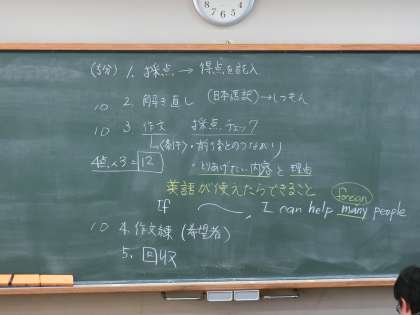 8 7 6 5 4
(5分) 1. 採点 → 得点を記入
10 2. 解き直し (日本語訳)→しつもん
10 3. 作文 採点チェック
・前後とのつながり
4点×3=12 ・とりあげたい内容と理由
英語が使えたらできること
If 〜, I can help many people
10 4. 作文練(希望者)
5. 回収